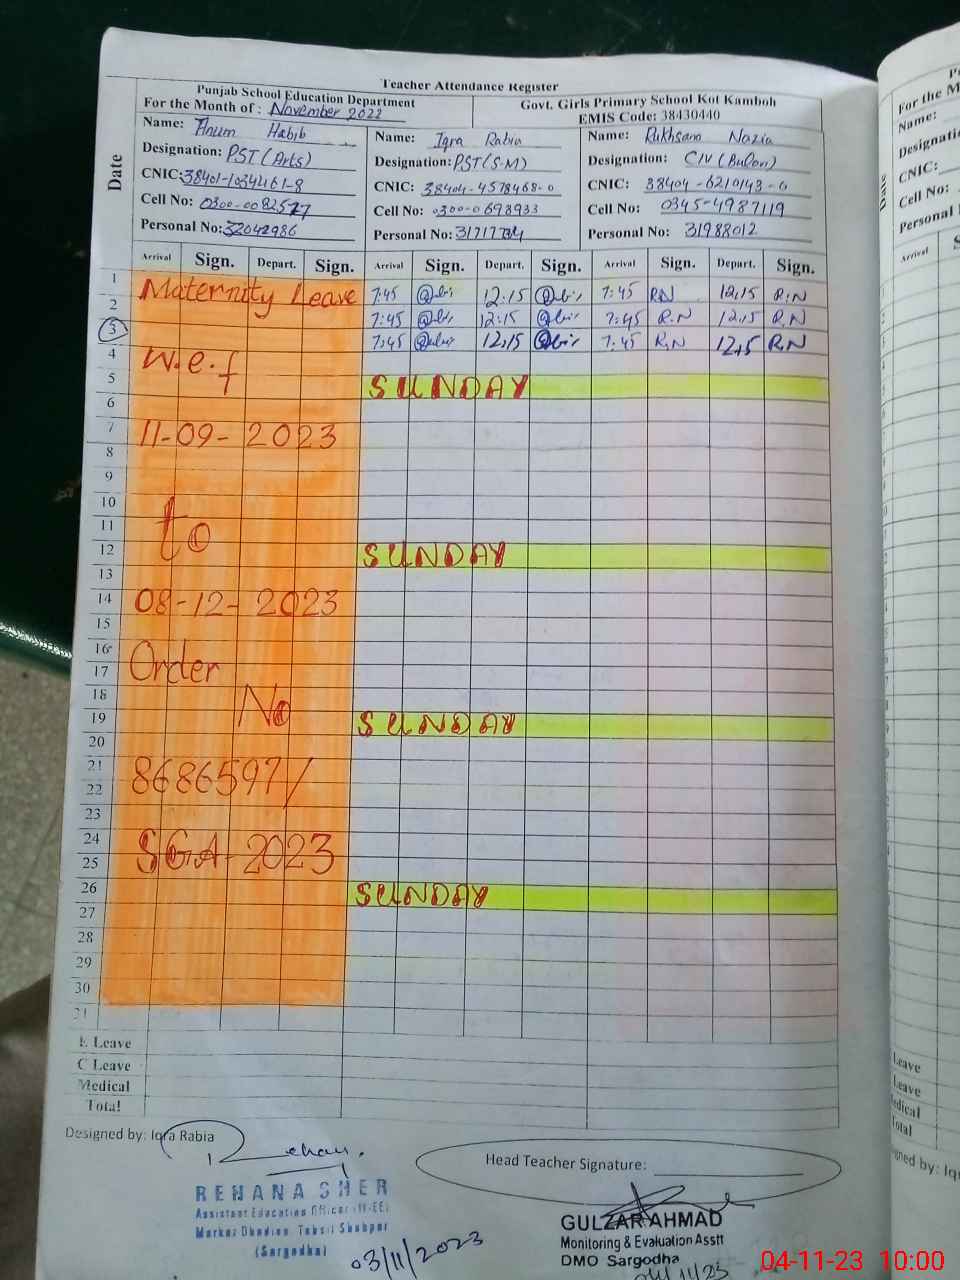 Teacher Attendance Register
Punjab School Education Department
Govt. Girls Primary School Kot Kamboh
For the Month of : November 2022
EMIS Code: 38430440
Date
Name: Anum Habib
Designation: PST (Arts)
CNIC: 38401-1034461-8
Cell No: 0300-0082577
Personal No: 32042986
Name: Iqra Rabia
Designation: PST (S-M)
CNIC: 38404-4578468-0
Cell No: 0300-0698933
Personal No:
Name: Rukhsana Nazia
Designation: CIV
CNIC: 38404-6210143-0
Cell No: 0345-4987119
Personal No: 31988012
Arrival Sign. Depart. Sign. Arrival Sign. Depart. Sign. Arrival Sign. Depart. Sign.
1 Maternity Leave 7:45 12:15 7:45 RN 12,15 R.N
2 7:45 12:15 7:45 R.N 12,15 R.N
3 7:45 12,15 7:45 R.N 12,15 R.N
4 w.e.f
5 SUNDAY
6
7 11-09-2023
8
9
10
11 to
12 SUNDAY
13
14 08-12-2023
15
16
17 Order
18 No
19 SUNDAY
20
21 8686597/
22
23
24 SGA-2023
25
26 SUNDAY
27
28
29
30
31
E Leave
C Leave
Medical
Total
Designed by: Iqra Rabia
Head Teacher Signature:
REHANA SHER
Assistant Education Officer (W-EE)
Markaz Tehsil Shahpur
(Sargodha)
03/11/2023
GULZAR AHMAD
Monitoring & Evaluation Asstt
DMO Sargodha
04/11/23
04-11-23 10:00
For the Mon
Name:
Designatio
CNIC:
Cell No:
Personal
Date
Arrival
Leave
Leave
edical
Total
gned by: Iq